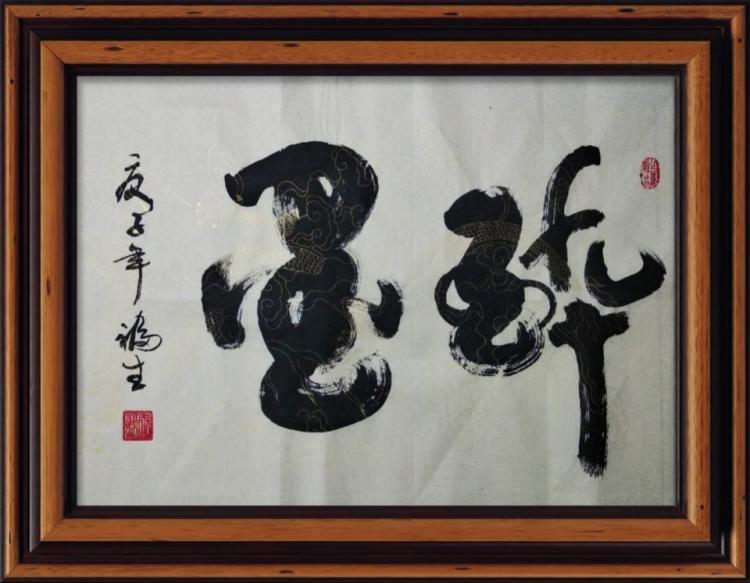 醉墨
庚子年福生